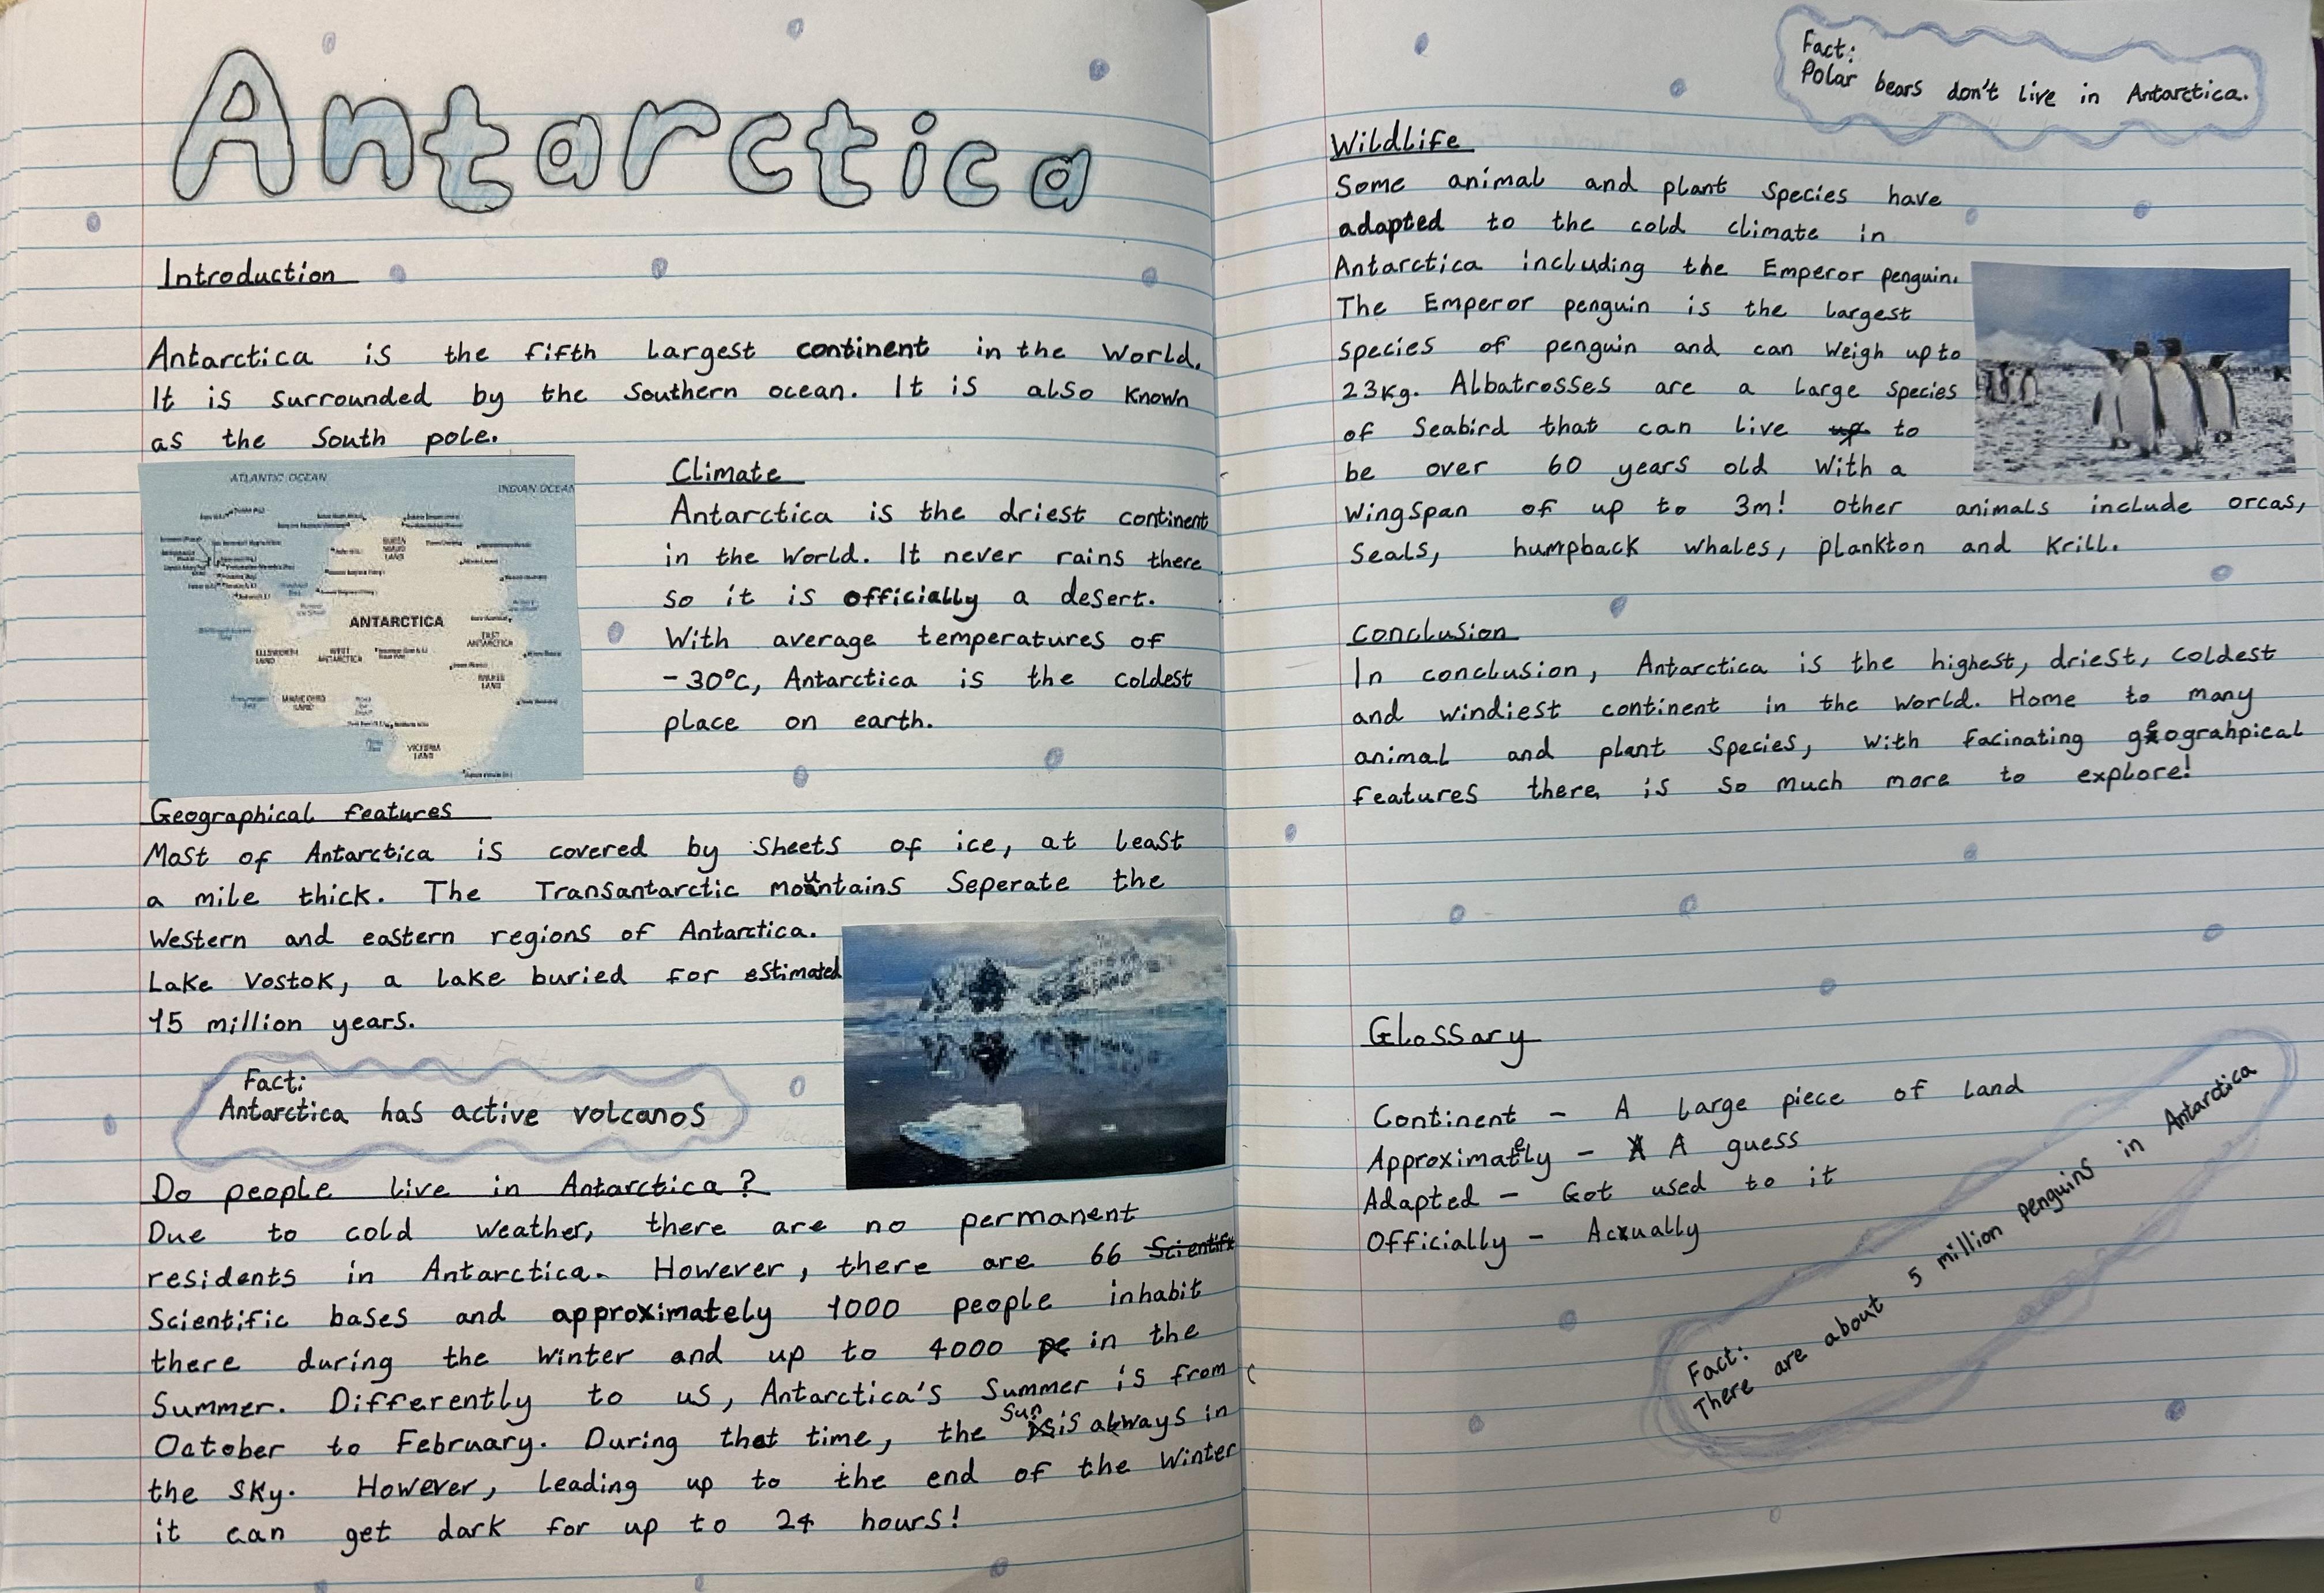 Antarctica
Introduction
Antarctica is the fifth largest continent in the World.
It is surrounded by the Southern ocean. It is also known
as the South pole.
ATLANTIC OCEAN
INDIAN OCEAN
QUEEN MAUD LAND
ANTARCTICA
EAST ANTARCTICA
ELLSWORTH LAND
WEST ANTARCTICA
WILKES LAND
MARIE BYRD LAND
VICTORIA LAND
Climate
Antarctica is the driest continent
in the World. It never rains there
so it is officially a desert.
With average temperatures of
-30°C, Antarctica is the coldest
place on earth.
Geographical features
Most of Antarctica is covered by sheets of ice, at least
a mile thick. The Transantarctic mountains Seperate the
Western and eastern regions of Antarctica.
Lake Vostok, a lake buried for estimated
15 million years.
Fact:
Antarctica has active volcanos
Do people live in Antarctica?
Due to cold weather, there are no permanent
residents in Antarctica. However, there are 66 Scientific
Scientific bases and approximately 1000 people inhabit
there during the winter and up to 4000 pe in the
Summer. Differently to us, Antarctica's Summer is from
October to February. During that time, the Sun is always in
the Sky. However, leading up to the end of the Winter
it can get dark for up to 24 hours!
Fact:
Polar bears don't live in Antarctica.
Wildlife
Some animal and plant Species have
adapted to the cold climate in
Antarctica including the Emperor penguin.
The Emperor penguin is the largest
Species of penguin and can weigh up to
23kg. Albatrosses are a large Species
of Seabird that can live up to
be over 60 years old with a
wingspan of up to 3m! other animals include orcas,
Seals, humpback whales, plankton and Krill.
Conclusion
In conclusion, Antarctica is the highest, driest, coldest
and windiest continent in the World. Home to many
animal and plant Species, with facinating geograhpical
features there is so much more to explore!
Glossary
Continent - A large piece of land
Approximately - A guess
Adapted - Got used to it
Officially - Actually
Fact:
There are about 5 million penguins in Antarctica